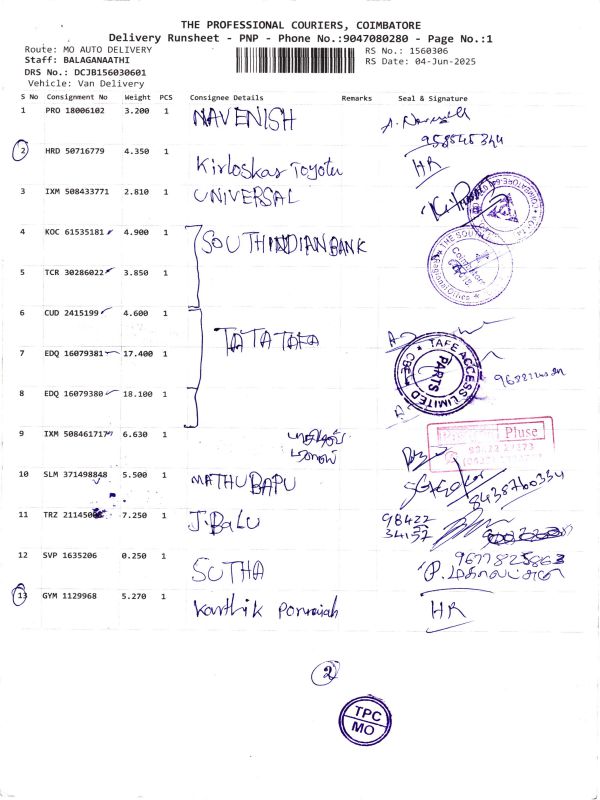 THE PROFESSIONAL COURIERS, COIMBATORE
Delivery Runsheet - PNP - Phone No.:9047080280 - Page No.:1
Route: MO AUTO DELIVERY
RS No.: 1560306
Staff: BALAGANAATHI
RS Date: 04-Jun-2025
DRS No.: DCJB156030601
Vehicle: Van Delivery
S No Consignment No Weight PCS Consignee Details Remarks Seal & Signature
1 PRO 18006102 3.200 1 NAVENISH
2 HRD 50716779 4.350 1 Kirloskar Toyota HR
3 IXM 508433771 2.810 1 UNIVERSAL
4 KOC 61535181 4.900 1 SOUTHINDIANBANK
5 TCR 30286022 3.850 1
6 CUD 2415199 4.600 1
TATA TAFA
7 EDQ 16079381 17.400 1
TAFE ACCESS LIMITED
PARTS
CBE
8 EDQ 16079380 18.100 1
9 IXM 508461717 6.630 1
Pluse
10 SLM 371498848 5.500 1 MATHUBAPU
8438760334
11 TRZ 21145 7.250 1 J.BALU 98422
34157
12 SVP 1635206 0.250 1 SUTHA
9677825863
13 GYM 1129968 5.270 1 Karthik Ponraiah HR
2
TPC
MO